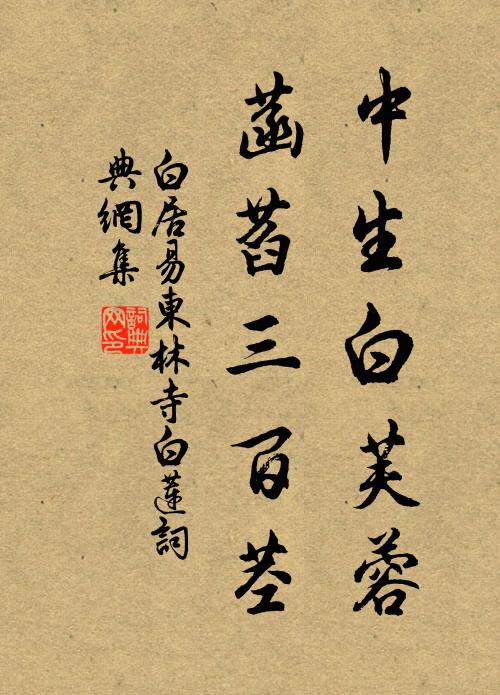 中生白芙蓉
菡萏三百莖
白居易東林寺白蓮詞
典網集
詞典网印